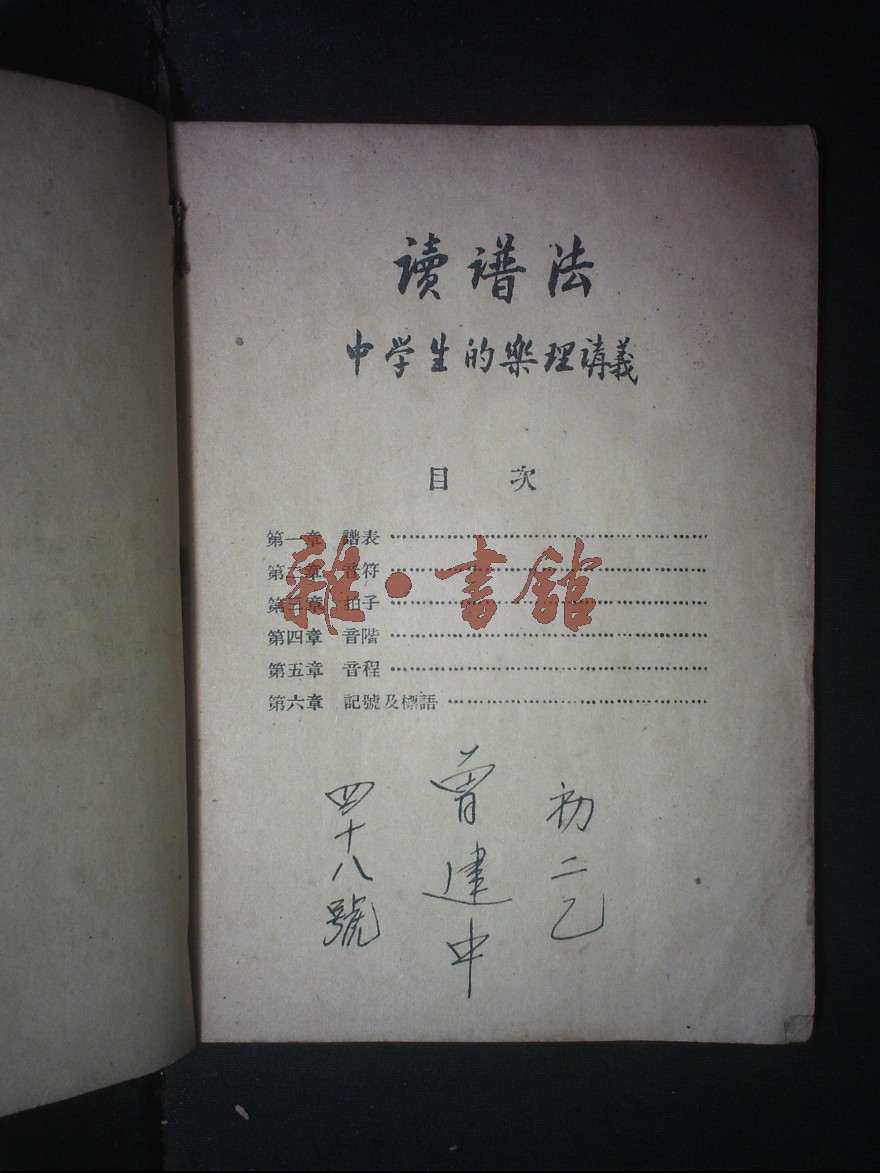 读谱法
中学生的樂理講義
目 次
第一章 譜表
第二章 音符
第三章 拍子
第四章 音階
第五章 音程
第六章 記號及標語
雜·書館
初二乙
曾建中
四十八號